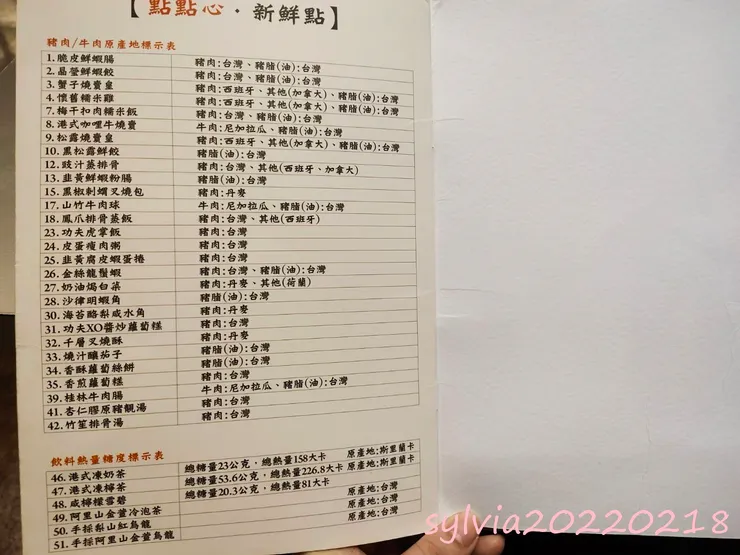 【點點心·新鮮點】
豬肉/牛肉原產地標示表
1.脆皮鮮蝦腸 豬肉:台灣、豬脂(油):台灣
2.晶瑩鮮蝦餃 豬肉:台灣、豬脂(油):台灣
3.蟹子燒賣皇 豬肉:西班牙、其他(加拿大)、豬脂(油):台灣
4.懷舊糯米雞 豬肉:西班牙、其他(加拿大)、豬脂(油):台灣
7.梅干扣肉糯米飯 豬肉:台灣、豬脂(油):台灣
8.港式咖哩牛燒賣 牛肉:尼加拉瓜、豬脂(油):台灣
9.松露燒賣皇 豬肉:西班牙、其他(加拿大)、豬脂(油):台灣
10.黑松露鮮餃 豬脂(油):台灣
12.豉汁蒸排骨 豬肉:台灣、其他(西班牙、加拿大)
13.韭黃鮮蝦粉腸 豬脂(油):台灣
15.黑椒剁燜叉燒包 豬肉:丹麥
17.山竹牛肉球 牛肉:尼加拉瓜、豬脂(油):台灣
18.鳳爪排骨蒸飯 豬肉:台灣、其他(西班牙)
23.功夫虎掌飯 豬肉:台灣
24.皮蛋瘦肉粥 豬肉:台灣
25.韭黃腐皮蝦蛋捲 豬肉:台灣
26.金絲龍鬚蝦 豬肉:台灣、豬脂(油):台灣
27.奶油焗白菜 豬肉:丹麥、其他(荷蘭)
28.沙律明蝦角 豬脂(油):台灣
30.海苔酪梨咸水角 豬肉:丹麥
31.功夫XO醬炒蘿蔔糕 豬肉:台灣
32.千層叉燒酥 豬肉:丹麥
33.燒汁釀茄子 豬脂(油):台灣
34.香酥蘿蔔絲餅 豬脂(油):台灣
35.香煎蘿蔔糕 豬肉:台灣
39.桂林牛肉腸 牛肉:尼加拉瓜、豬脂(油):台灣
41.杏仁膠原豬靚湯 豬肉:台灣
42.竹笙排骨湯 豬肉:台灣
飲料熱量糖度標示表
46.港式凍奶茶 總糖量23公克，總熱量158大卡 原產地:斯里蘭卡
47.港式凍檸茶 總糖量53.6公克，總熱量226.8大卡 原產地:斯里蘭卡
48.咸檸檬雪碧 總糖量20.3公克，總熱量81大卡
49.阿里山金萱冷泡茶 原產地:台灣
50.手採梨山紅烏龍 原產地:台灣
51.手採阿里山金萱烏龍 原產地:台灣
sylvia20220218